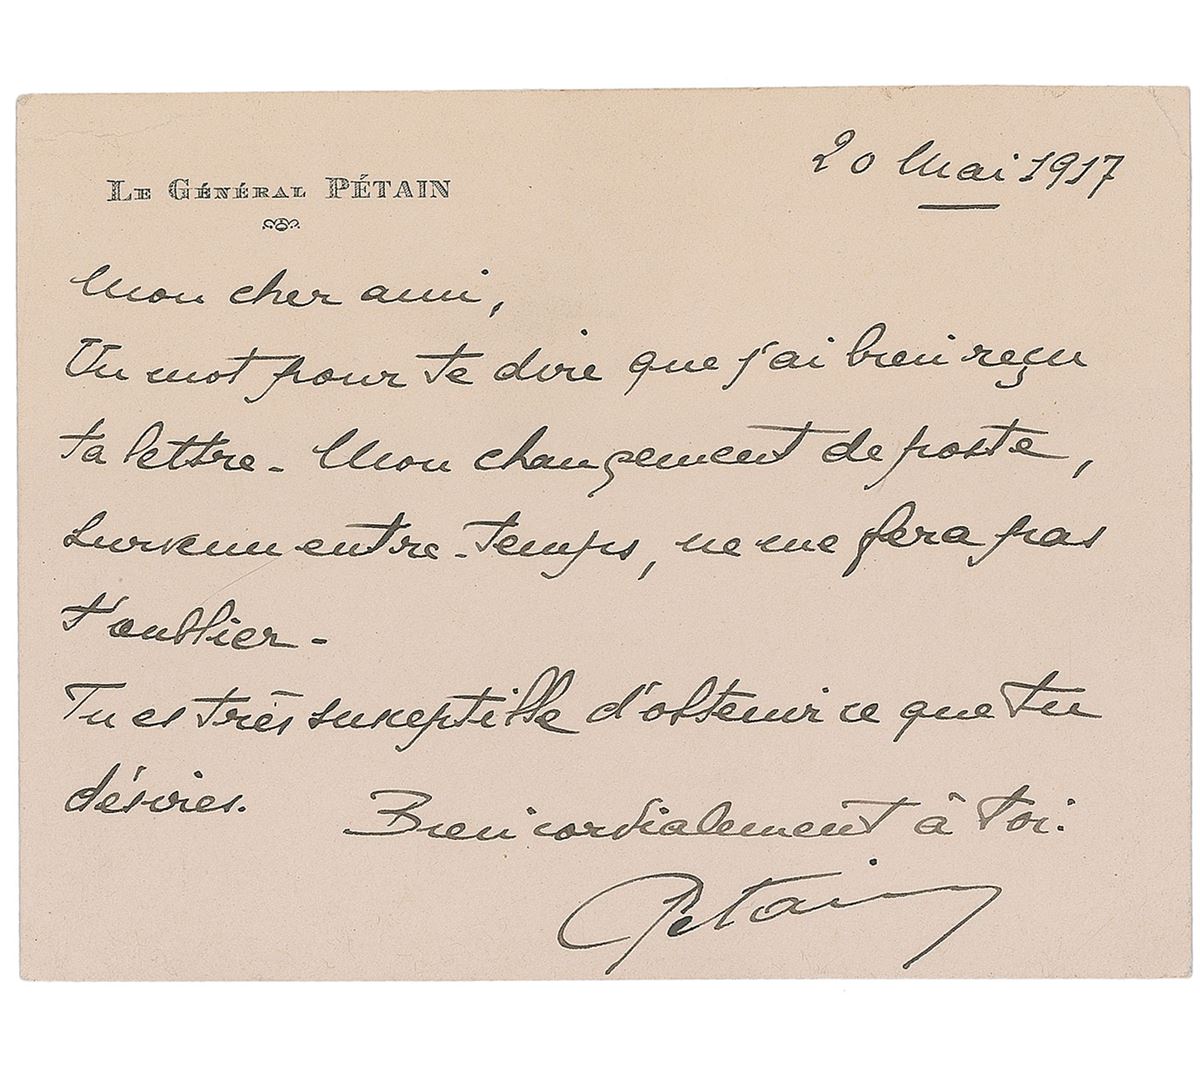 LE GÉNÉRAL PÉTAIN
20 Mai 1917
Mon cher ami,
Un mot pour te dire que j'ai bien reçu
ta lettre - Mon changement de poste,
survenu entre-temps, ne me fera pas
t'oublier -
Tu es très susceptible d'obtenir ce que tu
désires.
Bien cordialement à toi.
Pétain